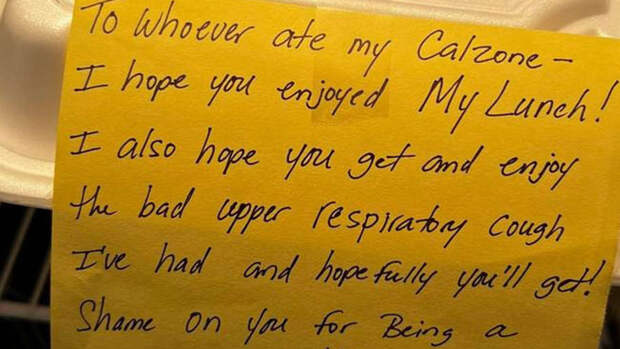 To Whoever ate my Calzone –
I hope you enjoyed My Lunch!
I also hope you get and enjoy
the bad upper respiratory cough
I've had and hopefully you'll get!
Shame on you for Being a